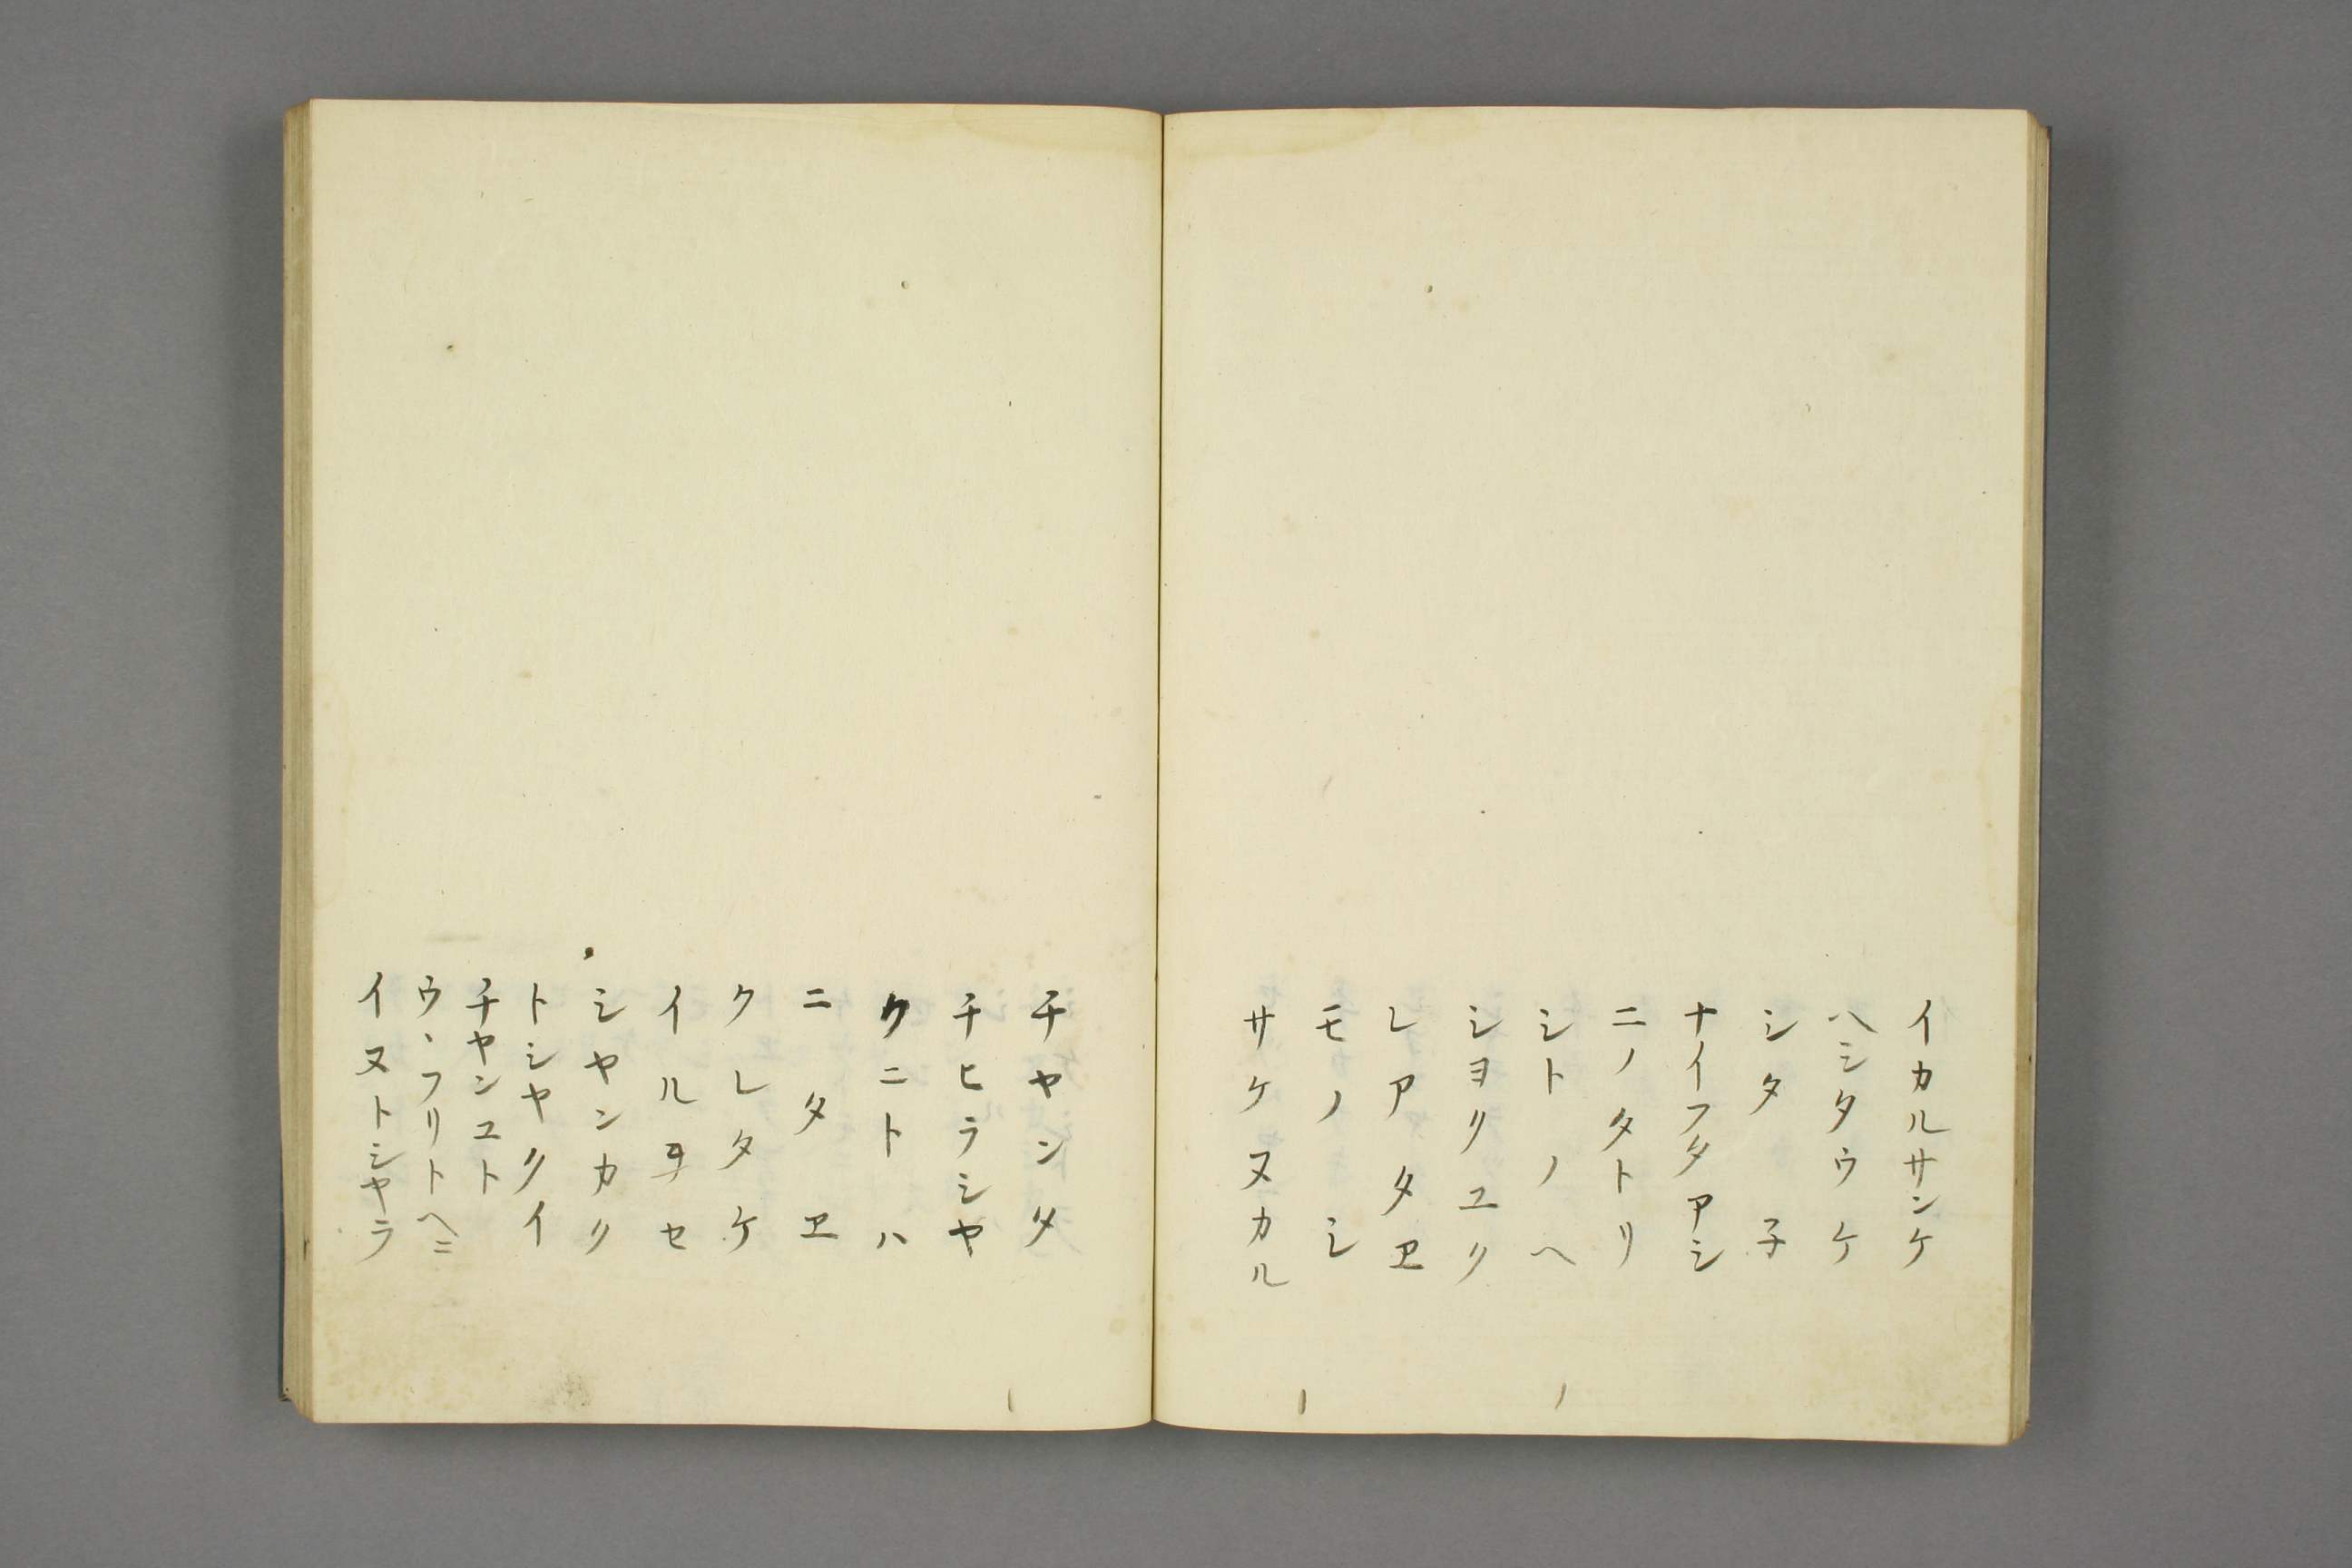 イカルサンケ
ハシタウケ
シタ子
ナイフタアシ
ニノタトリ
シトノヘ
シヨリユリ
レアタヱ
モノシ
サケヌカル
チヤンタ
チヒラシヤ
クニトハ
ニタヱ
クレタケ
イルヲセ
シヤンカリ
トシヤクイ
チヤンユト
ウ、フリトヘニ
イヌトシヤラ